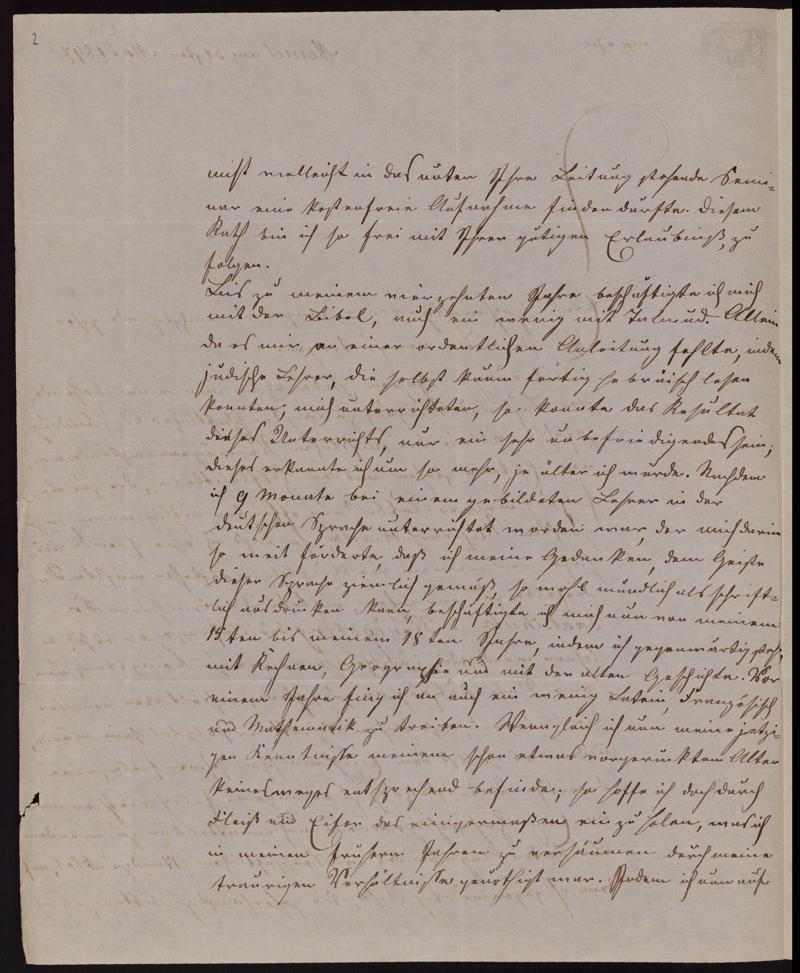 2
nicht vielleicht in das unter Ihrer Leitung stehende Semi-
nar eine kostenfreie Aufnahme finden dürfte. Diesem
Rath bin ich so frei mit Ihrer gütigen Erlaubniß, zu
folgen.
Bis zu meinem vierzehnten Jahre beschäftigte ich mich
mit der Bibel, auch ein wenig mit Talmud. Allein
da es mir an einer ordentlichen Anleitung fehlte, indem
jüdische Lehrer, die selbst kaum fertig hebräisch lesen
konnten, mich unterrichteten, so konnte das Resultat
dieses Unterrichts, nur ein sehr unbefriedigendes sein;
dieses erkannte ich um so mehr, je älter ich wurde. Nachdem
ich 9 Monate bei einem gebildeten Lehrer in der
deutschen Sprache unterrichtet worden war, der mich darin
so weit förderte, daß ich meine Gedanken, dem Geiste
dieser Sprache ziemlich gemäß, so wohl mündlich als schrift-
lich ausdrücken kann, beschäftigte ich mich nun von meinem
15ten bis meinem 18ten Jahre, indem ich gegenwärtig stehe,
mit Rechnen, Geographie und mit der alten Geschichte. Vor
einem Jahre fing ich an auch ein wenig Latein, Französisch
und Mathematik zu treiben. Wenngleich ich nun meine jetzi-
gen Kenntnisse meinem schon etwas vorgerückten Alter
keinesweges entsprechend befinde; so hoffe ich doch durch
Fleiß und Eifer das einigermaßen einzuholen, was ich
in meinen frühern Jahren zu versäumen durch meine
traurigen Verhältnisse genöthigt war. Indem ich nun auf